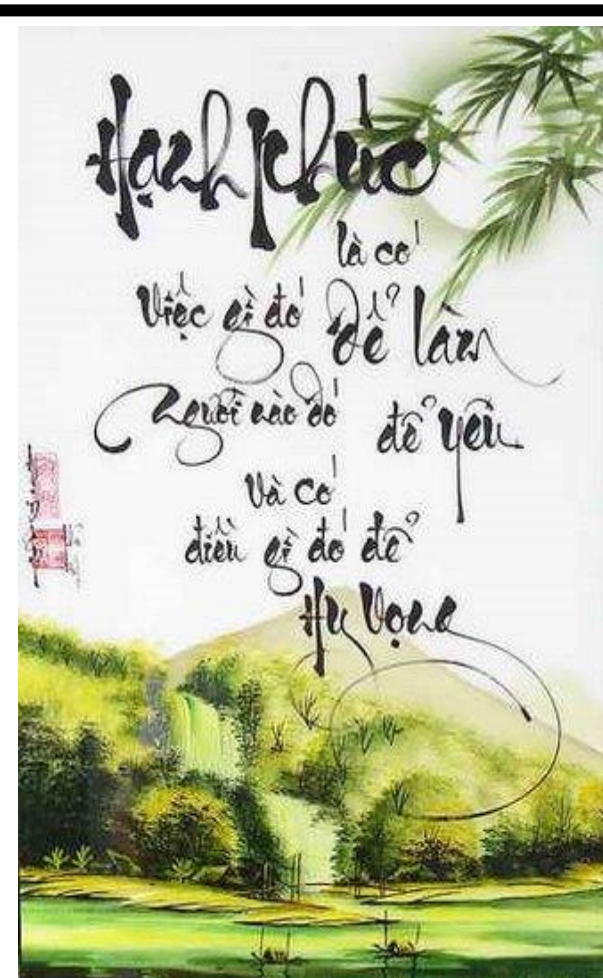 Hạnh phúc
là có
Việc gì đó để làm
Người nào đó để yêu
Và có
điều gì đó để
Hy Vọng